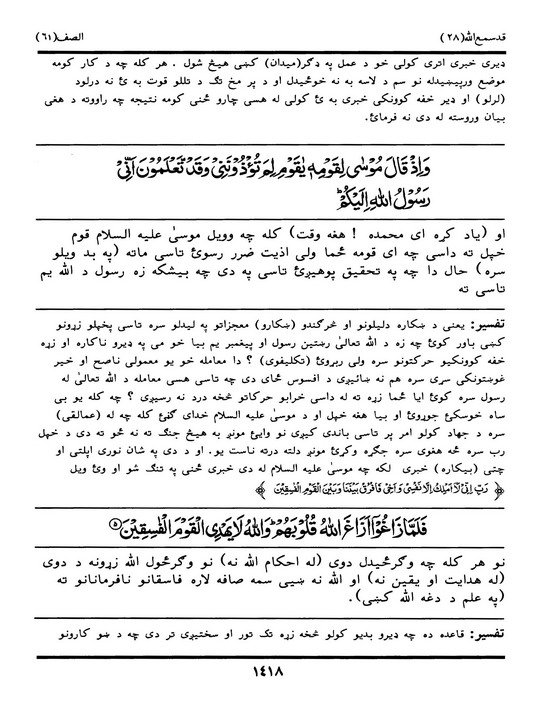 قدسمع الله(٢٨)
الصف(٦١)
ډیری خبری اتری کولی خو د عمل په ډګر(میدان) کښی هیڅ شول . هر کله چه د کار کومه
موضع ورپیښیدله نو سم د لاسه به نه خوځیدل او د پر مخ تګ د تللو قوت به ئ نه درلود
(لرلو) او ډیر خفه کوونکی خبری به ئ کولی له هسی چارو ځنی کومه نتیجه چه راووته د هغی
بیان وروسته له دی نه فرمائ.
وَاِذْ قَالَ مُوْسٰى لِقَوْمِهٖ يٰقَوْمِ لِمَ تُؤْذُوْنَنِيْ وَقَدْ تَّعْلَمُوْنَ اَنِّيْ
رَسُوْلُ اللهِ اِلَيْكُمْ
او (یاد کړه ای محمده ! هغه وقت) کله چه وویل موسیٰ علیه السلام قوم
خپل ته داسی چه ای قومه ځما ولی اذیت ضرر رسوئ تاسی ماته (په بد ویلو
سره) حال دا چه په تحقیق پوهیږئ تاسی په دی چه بیشکه زه رسول د الله یم
تاسی ته
تفسیر: یعنی د ښکاره دلیلونو او څرګندو (ښکارو) معجزاتو په لیدلو سره تاسی پخپلو زړونو
کښی باور کوئ چه زه د الله تعالیٰ رښتین رسول او پیغمبر یم بیا خو می په ډیرو ناکاره او زړه
خفه کوونکیو حرکتونو سره ولی ربړوئ (تکلیفوی) ؟ دا معامله خو یو معمولی ناصح او خیر
غوښتونکی سړی سره هم نه ښائیږی د افسوس ځای دی چه تاسی هسی معامله د الله تعالیٰ له
رسول سره کوئ ایا ځما زړه ته له داسی خرابو حرکاتو څخه درد نه رسیږی ؟ چه کله یو بی
ساه خوسکئ جوړوئ او بیا هغه خپل او د موسیٰ علیه السلام خدای ګڼئ کله چه له (عمالقی)
سره د جهاد کولو امر پر تاسی باندی کیږی نو وایئ مونږ به هیڅ جنګ ته نه ځو ته دی د خپل
رب سره څه هغوی سره جګړه وکړئ مونږ دلته درته ناست یو. او د دی په شان نوری اپلتی او
چتی (بیکاره) خبری لکه چه موسیٰ علیه السلام له دی خبری ځنی په تنګ شو او وئ ویل
﴿ رَبِّ اِنِّيْ لَآ اَمْلِكُ اِلَّا نَفْسِيْ وَاَخِيْ فَافْرُقْ بَيْنَنَا وَبَيْنَ الْقَوْمِ الْفٰسِقِيْنَ ﴾
فَلَمَّا زَاغُوْٓا اَزَاغَ اللهُ قُلُوْبَهُمْ وَاللهُ لَا يَهْدِى الْقَوْمَ الْفٰسِقِيْنَ ۵
نو هر کله چه وګرځیدل دوی (له احکام الله نه) نو وګرځول الله زړونه د دوی
(له هدایت او یقین نه) او الله نه ښیی سمه صافه لاره فاسقانو نافرمانانو ته
(په علم د دغه الله کښی).
تفسیر: قاعده ده چه ډیرو بدیو کولو څخه زړه تک تور او سختیږی تر دی چه د ښو کارونو
١٤١٨